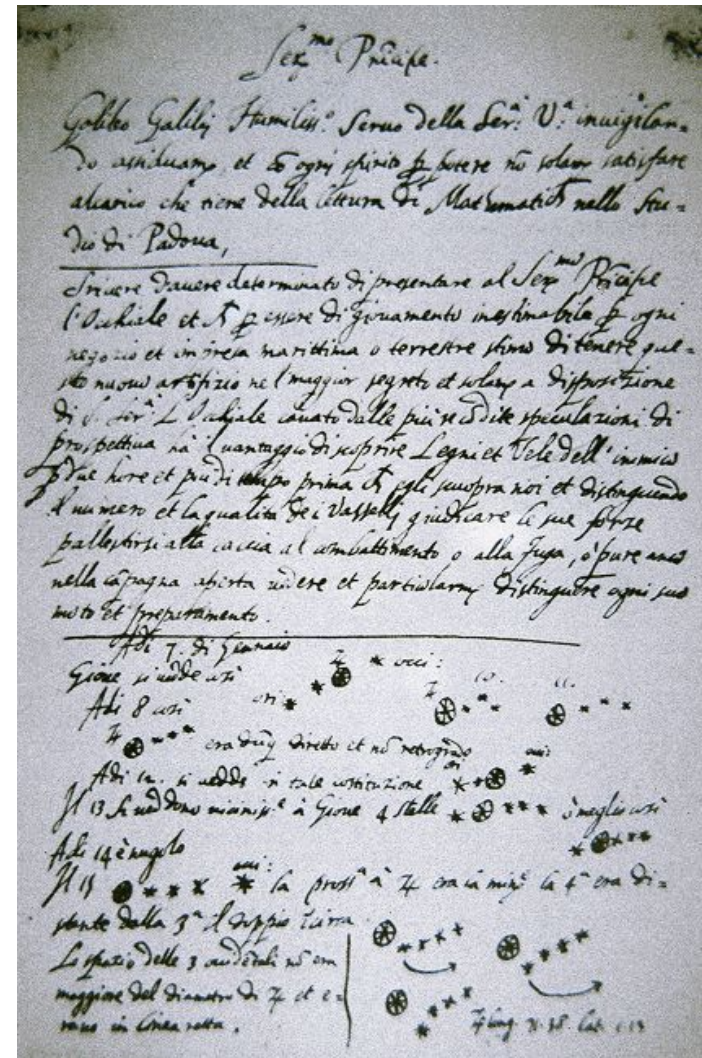 Ser.mo Principe.
Galileo Galilej Humiliss.o Seruo della Ser.a V.a inuigilan=
do assiduam.e et cō ogni spirito p potere nō solam.e satisfare
alcarico che tiene della lettura di Mathematich nello Stu=
dio di Padoua,
Scriuere dauere determinato di presentare al Ser.mo Pricipe
l'Ochiale et p essere di giouamento inestimabile p ogni
negozio et impresa marittima o terrestre stimo di tenere que=
sto nuouo artifizio nel maggior segreto et solam.e a disposizione
di S. Ser.a L'Ochiale cauato dalle piu recōdite speculazioni di
prospettiua ha il uantaggio di scoprire Legni et Vele dell'inimico
p due hore et piu di tempo prima ch egli scuopra noi et distinguendo
il numero et la qualita de i Vasselli giudicare le sue forze
pallestirsi alla caccia al combattimento o alla fuga, o pure anco
nella cāpagna aperta uedere et particolarm.e distinguere ogni suo
moto et preparamento.
Adi 7. di Gennaio
Gione si uedde cosi ♃ occi:
Adi 8 cosi ori: ♃ 10. 11.
♃ era dūq diretto et nō retrogrado
Adi 12. si uedde in tale costituzione ori occi:
Il 13 si ueddono uiciniss.e à Gioue 4 stelle ò meglio cosi
Adi 14 è nugolo
Il 15 occi: la pross.a à ♃ era la min.e la 4.a era di=
stante dalla 3.a il doppio Circa
Lo spatio delle 3 occidētali nō era
maggiore del diametro di ♃ et e=
rano in linea retta.
♃ long. 71.38 lat. 1.13